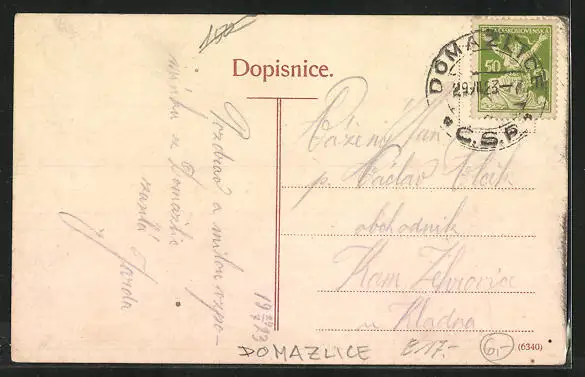 150
Dopisnice.
ČESKOSLOVENSKÁ
50
DOMAŽLICE
29.VII.23-
Č.S.P.
Pozdrav a milou vzpo-
mínku z Domažlic
zasílá
Jarda
19 29/7 23
Vážený Pan
p. Václav Vlčik
obchodník
Kam. Žehrovice
u Kladna
DOMAZLICE
E 17.-
6,-
(6340)